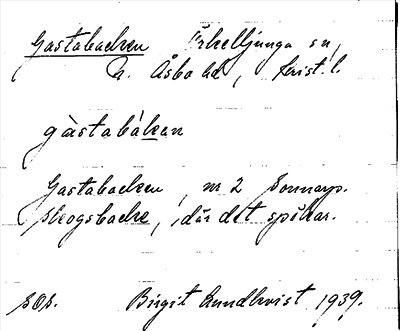 Gastabacken Örkelljunga sn,
N. Åsbo hd, Krist. l.
gàstabákan
Gastabacken, nr 2 Sonnarp.
skogsbacke, där det spökar.
sOs. Birgit Lundkvist 1939.